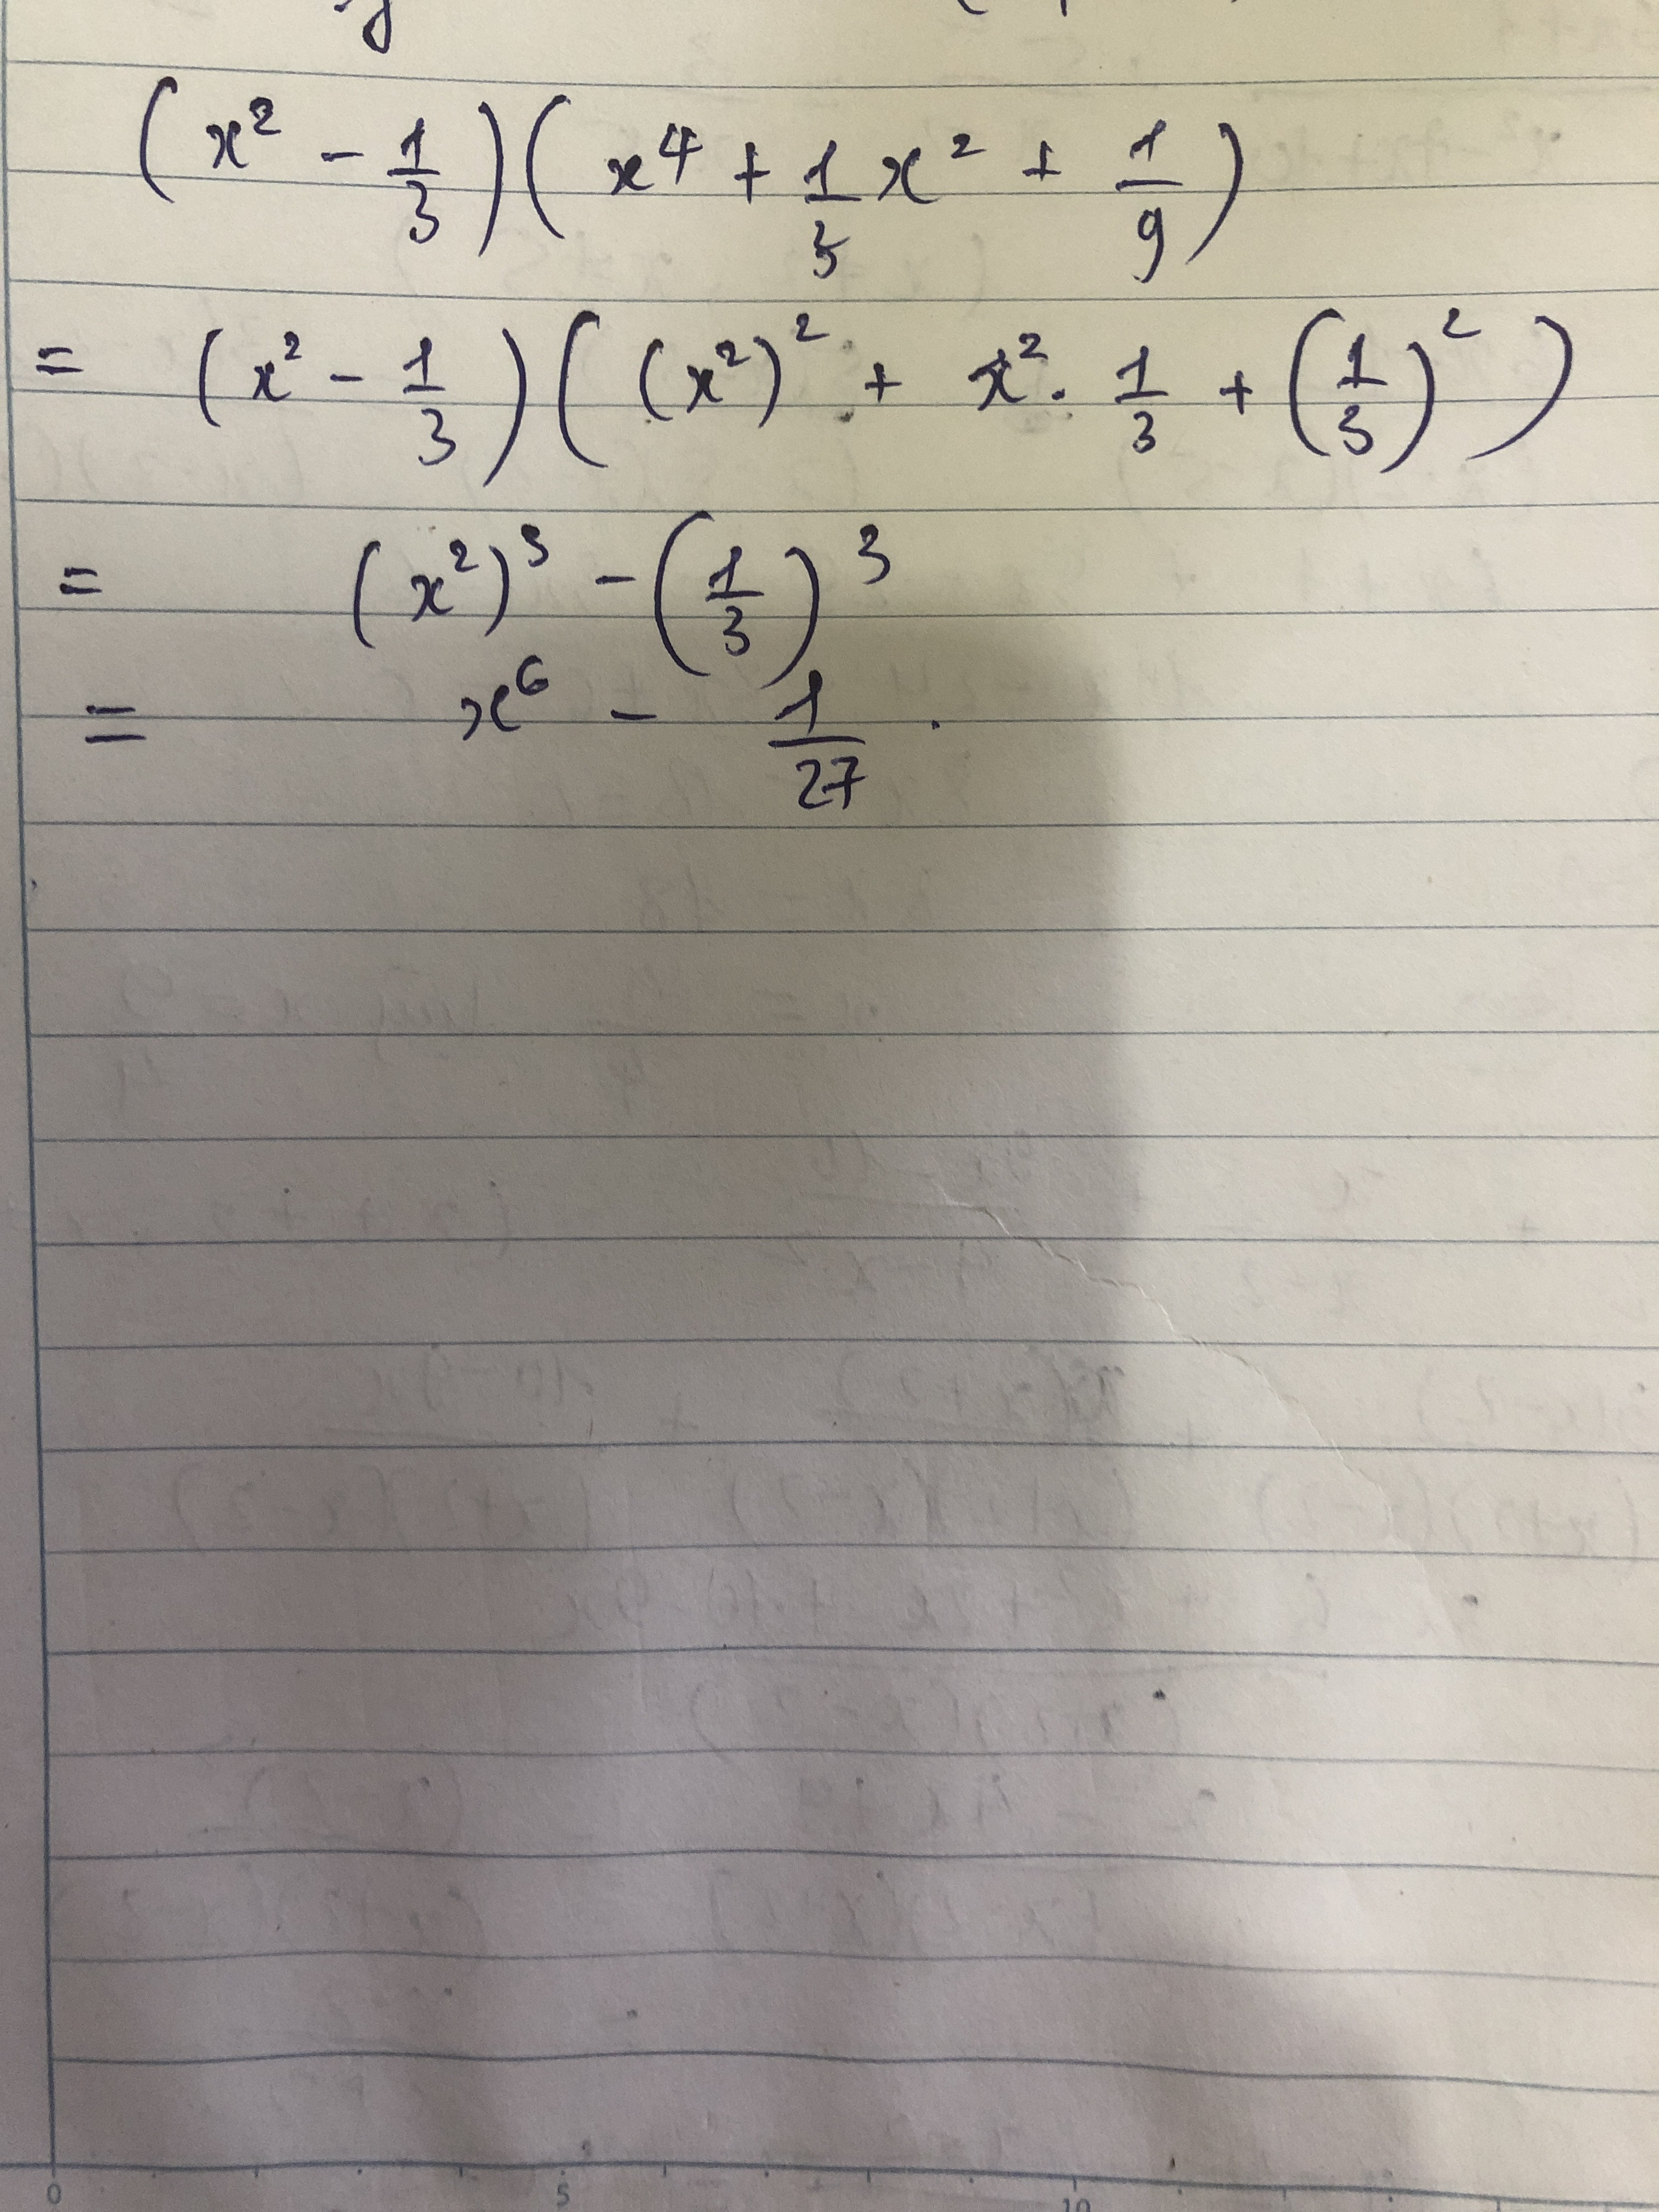 (x² - 1/3)(x⁴ + 1/3 x² + 1/9)
= (x² - 1/3)((x²)² + x² . 1/3 + (1/3)²)
= (x²)³ - (1/3)³
= x⁶ - 1/27 .
0 5 10